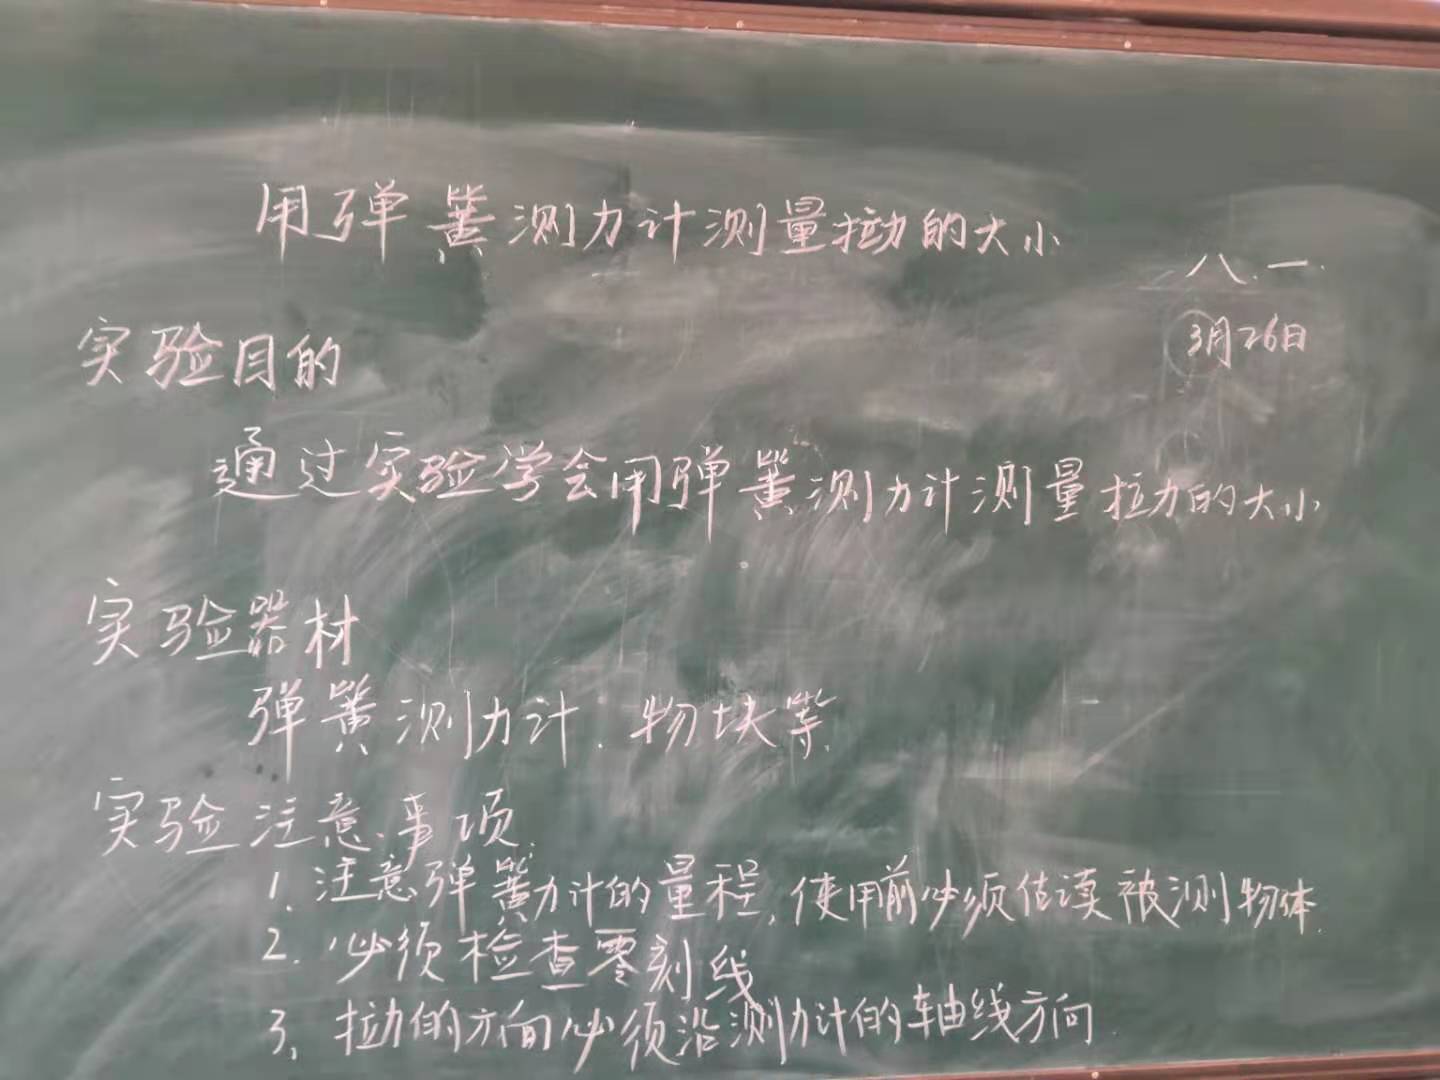 用弹簧测力计测量拉力的大小
八.一.
3月26日
实验目的
通过实验学会用弹簧测力计测量拉力的大小
实验器材
弹簧测力计.物块等.
实验注意事项.
1.注意弹簧力计的量程,使用前必须估读被测物体.
2.必须检查零刻线
3.拉力的方向必须沿测力计的轴线方向.